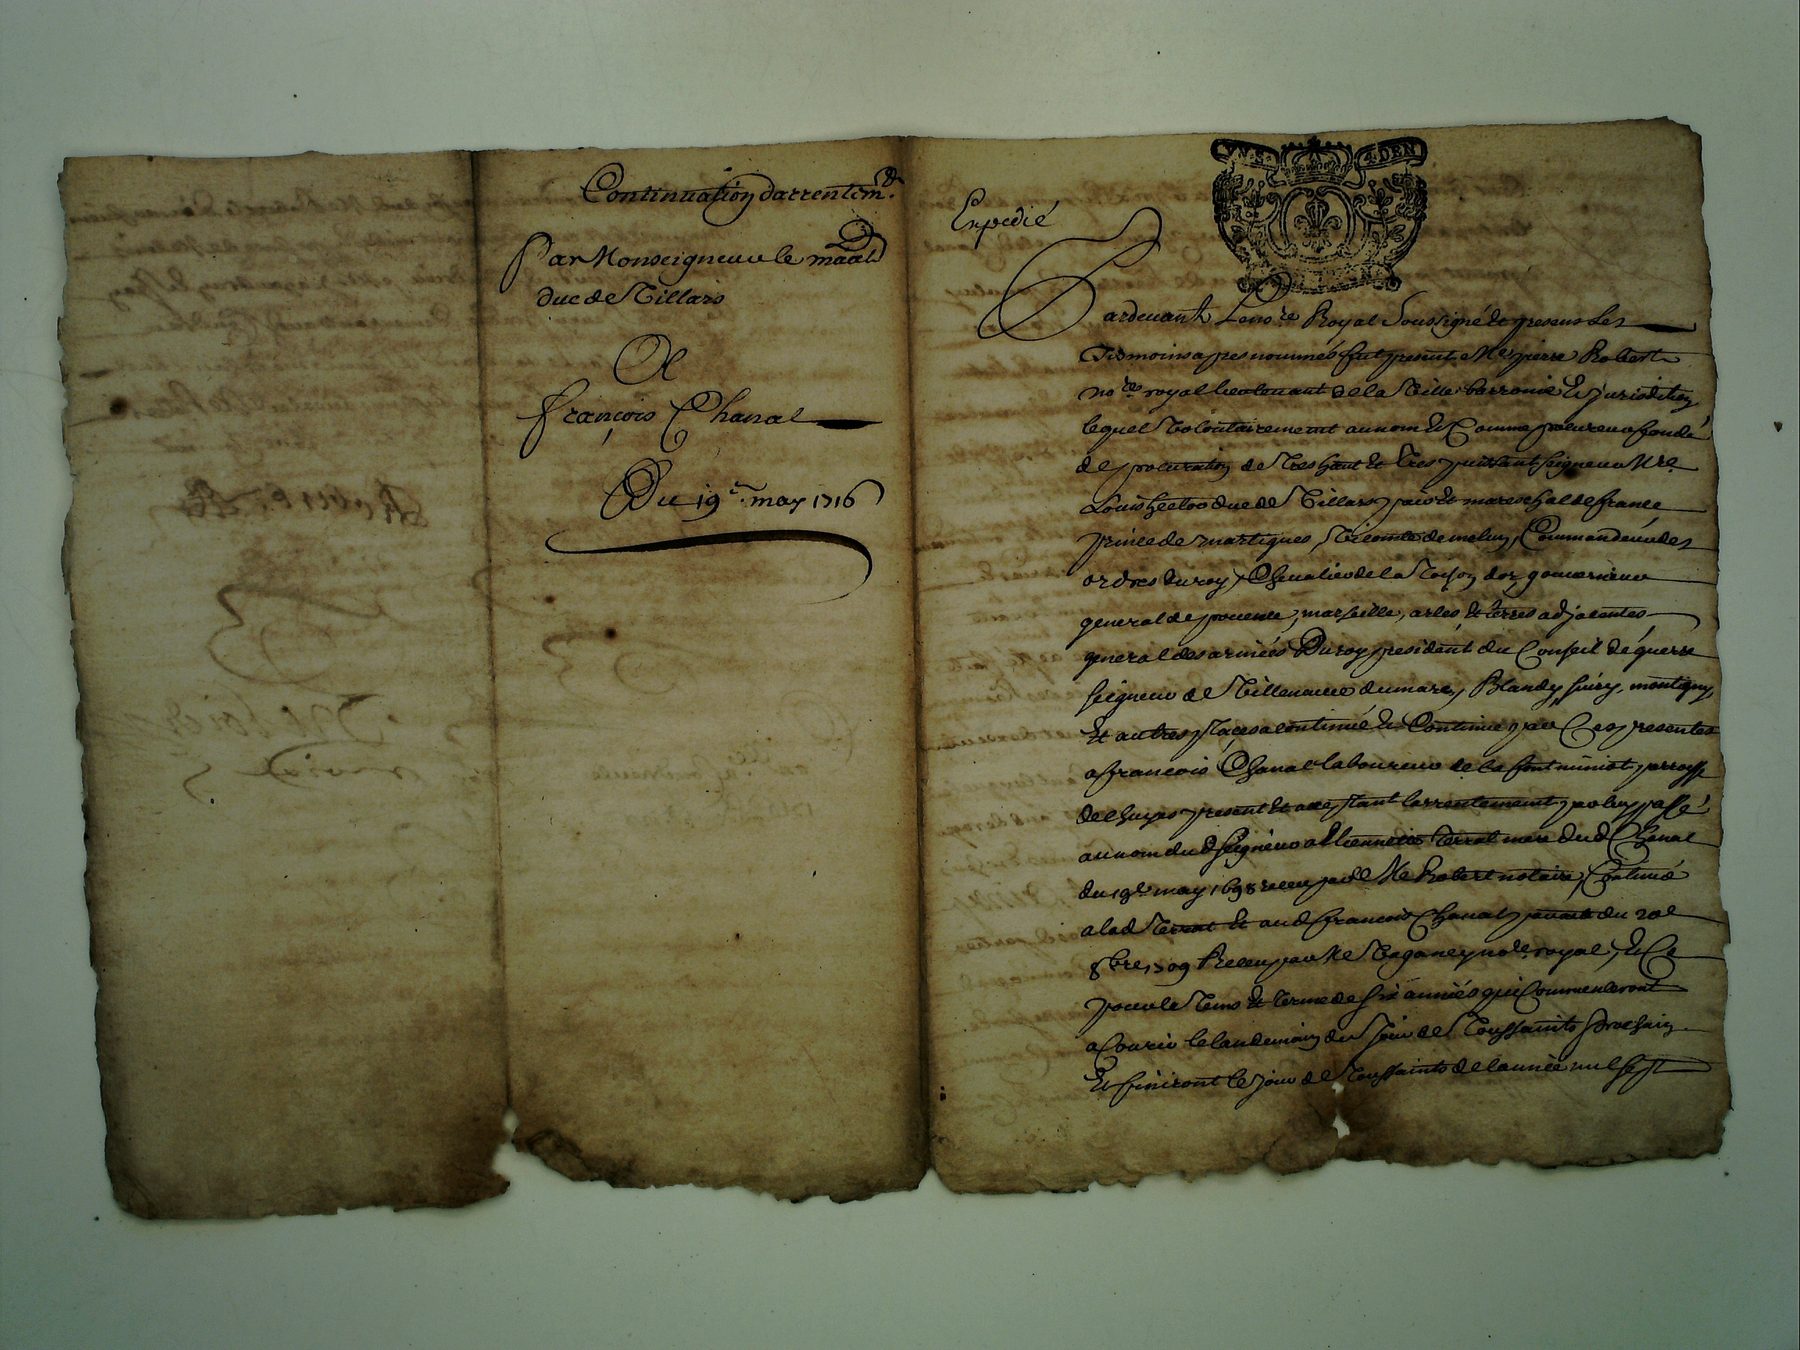 Continuation darrentem.t
Par Monseigneur le maal
duc de Villars
A
françois Chanal
Du 19e may 1716
Expedié
4 DEN
Pardevant Le no.re Royal Soussigné Et presens Les
Tesmoins apres nommés fut present Me pierre Robert
no.re royal lieutenant de la Ville barronie Et jurisdition
lequel Volontairement au nom Et Comme procureur fondé
de procuration de Tres haut Et Tres puissant seigneur Mre
Louis hector duc de Villars pair Et mareschal de france
prince de martigues, Vicomte de melun, Commandeur des
ordres du roy, Chevalier de la Toison dor, gouverneur
general de provence, marseille, arles Et terres adjacentes
general des armées Du roy president du Conseil de guerre
seigneur de Villeneuve dumarey Blandy sivry, montigny
Et autres places a continué Et Continue par Ces presentes
a francois Chanal laboureur de la font miniot parroisse
de present Et acceptant larrentement par luy passé
au nom dud seigneur a Etiennette terrat mere dud Chanal
du 19e may 1698 receu par led Me Robert notaire, Continué
a lad Terrat Et aud francois Chanal par acte du 20e
8bre 1709 Receu par Me Vaganey no.re royal, Et Ce
pour le Tems Et terme de six années qui Commenceront
a Courir le landemain du jour de Toussaints prochain
Et finiront le jour de Toussaints de lannée mil sept